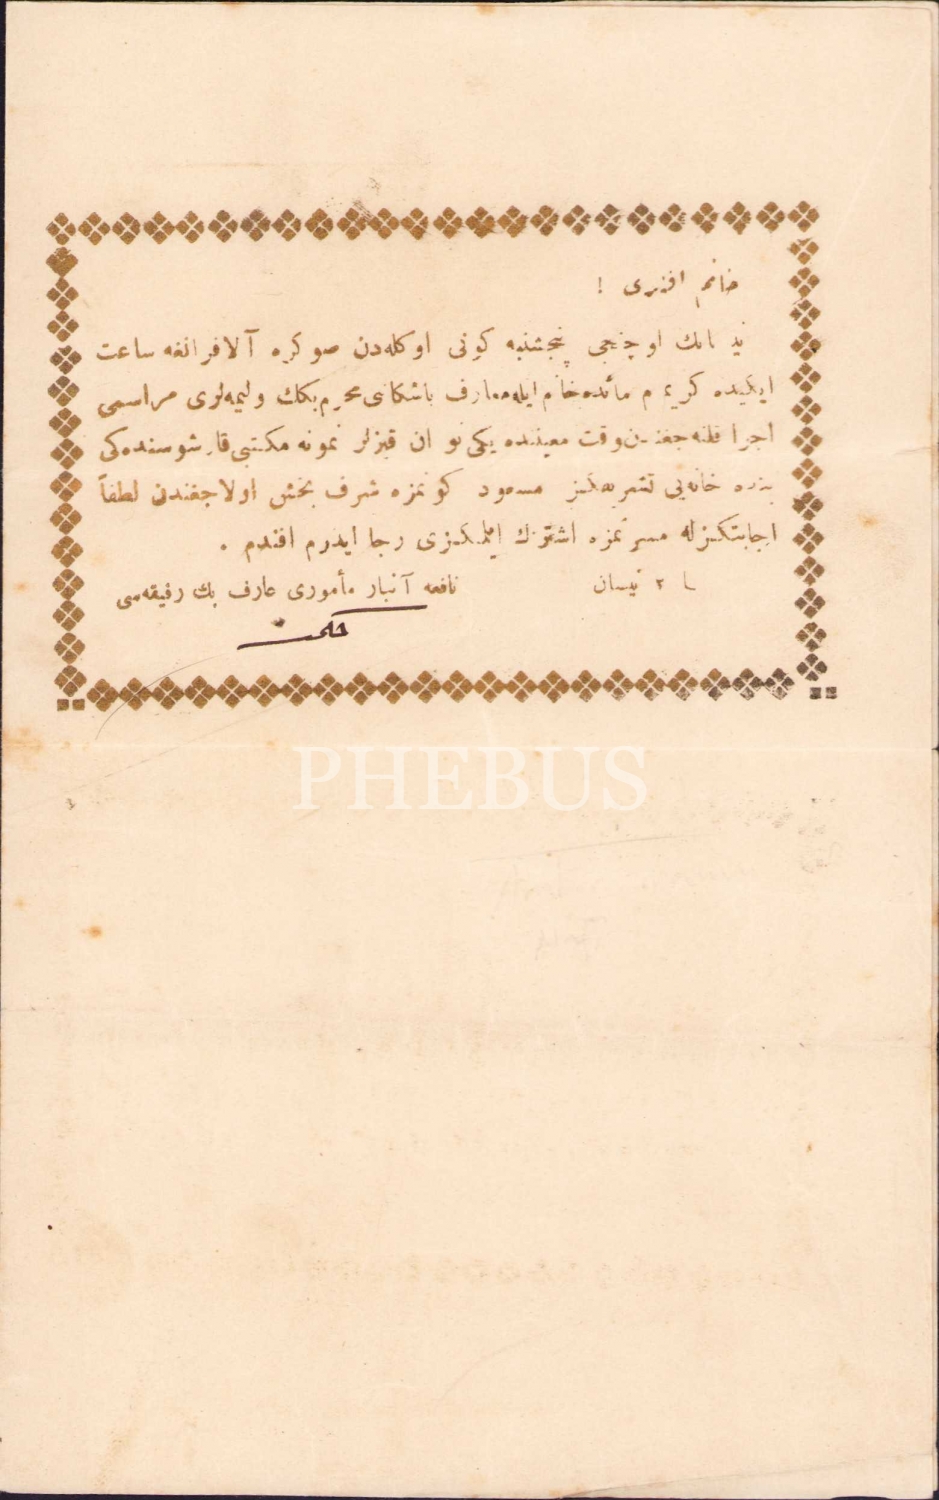 خانم افندی !
نیسانك اوچنجی پنجشنبه كونی اوكله‌دن صوكره آلافرانغه ساعت
ایكیده كریمه‌م مائده خانم ایله معارف باشكاتبی محرم بكك ولیمه‌لری مراسمی
اجرا قلنه‌جغندن وقت معیننده یكی نو ان قیزلر نمونه مكتبی قارشوسنده‌كی
بنده خانه‌یی تشریفكز مسعود كونمزه شرف بخش اولاجغندن لطفاً
اجابتكزله مسرتمزه اشتراك ایلمكزی رجا ایدرم افندم .
٢ نیسان
نافعه آنبار مأموری عارف بك رفیقه‌سی
PHEBUS